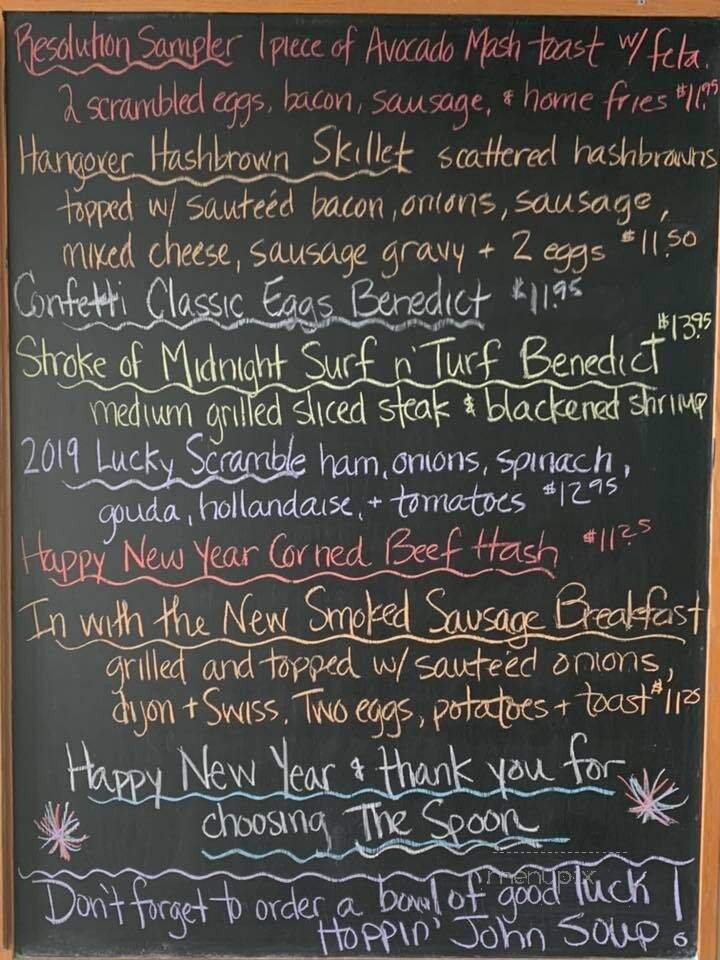 Resolution Sampler 1 piece of Avocado Mash toast w/ feta.
2 scrambled eggs, bacon, sausage, & home fries $11.95
Hangover Hashbrown Skillet scattered hashbrowns
topped w/ sauteéd bacon, onions, sausage,
mixed cheese, sausage gravy + 2 eggs $11.50
Confetti Classic Eggs Benedict $11.95
Stroke of Midnight Surf n' Turf Benedict $13.95
medium grilled sliced steak & blackened shrimp
2019 Lucky Scramble ham, onions, spinach,
gouda, hollandaise, + tomatoes $12.95
Happy New Year Corned Beef Hash $11.25
In with the New Smoked Sausage Breakfast
grilled and topped w/ sauteéd onions,
dijon + Swiss. Two eggs, potatoes + toast $11.25
Happy New Year & thank you for
choosing The Spoon
menupix
Don't forget to order a bowl of good luck
Hoppin' John Soup!